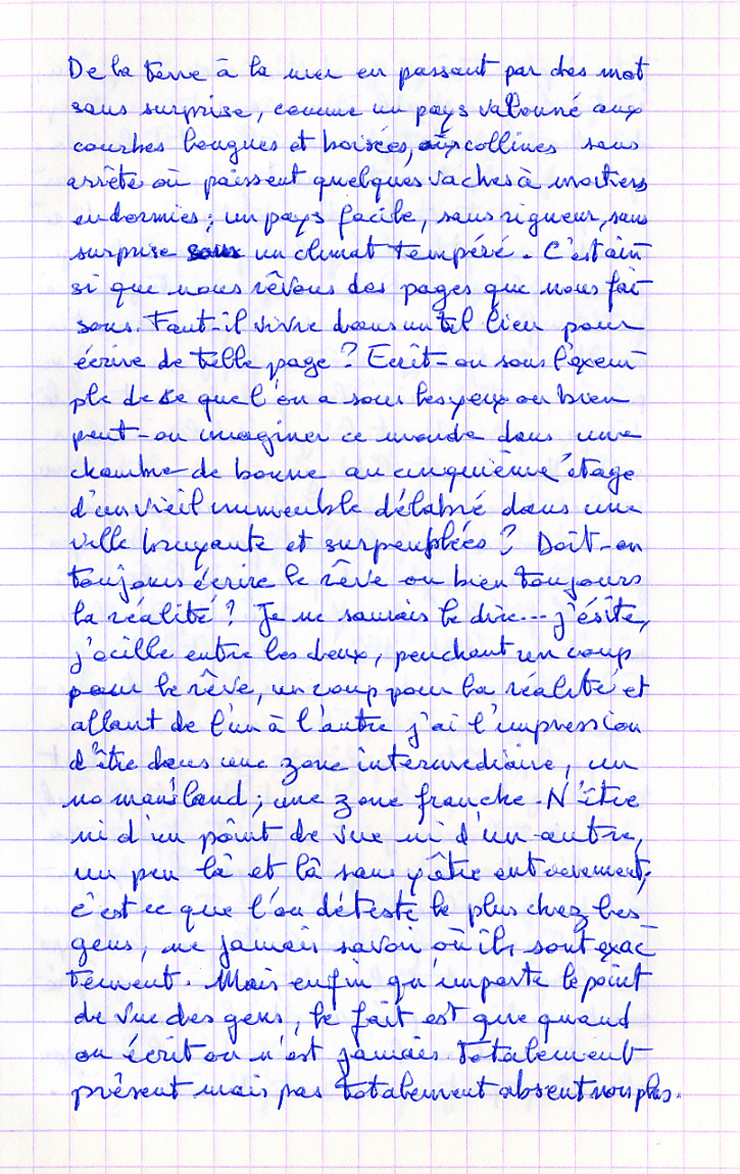 De la terre à la mer en passant par des mot
sans surprise, comme un pays vallonné aux
courbes longues et boisées, aux collines sans
arrête où paissent quelques vaches à moitiers
endormies ; un pays facile, sans rigueur, sans
surprise sous un climat tempéré. C'est ain
si que nous rêvons des pages que nous fai
sons. Faut-il vivre dans un tel lieu pour
écrire de telle page ? Ecrit-on sous l'exem
ple de ce que l'on a sous les yeux ou bien
peut-on imaginer ce monde dans une
chambre de bonne au cinquième étage
d'un vieil immeuble délabré dans une
ville bruyante et surpeuplées ? Doit-on
toujours écrire le rêve ou bien toujours
la réalité ? Je ne saurais le dire... j'ésite,
j'ocille entre les deux, penchant un coup
pour le rêve, un coup pour la réalité et
allant de l'un à l'autre j'ai l'impression
d'être dans une zone intermediaire, un
no man's land ; une zone franche. N'être
ni d'un point de vue ni d'un autre,
un peu là et là sans y être entierement,
c'est ce que l'on déteste le plus chez les
gens, ne jamais savoir où ils sont exac
tement. Mais enfin qu'importe le point
de vue des gens, le fait est que quand
on écrit on n'est jamais totalement
présent mais pas totalement absent non plus.